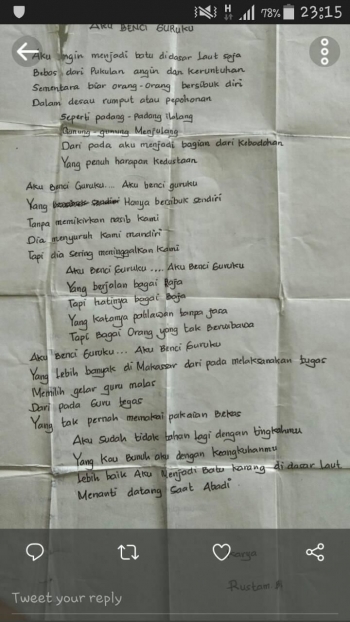 78% 23:15
AKU BENCI GURUKU
Aku ingin menjadi batu di dasar Laut saja
Bebas dari Pukulan angin dan Keruntuhan
Sementara biar orang-orang bersibuk diri
Dalam desau rumput atau pepohonan
Seperti padang-padang ilalang
Gunung-gunung Menjulang
Dari pada aku menjadi bagian dari Kebodohan
Yang penuh harapan Kedustaan
Aku Benci Guruku... Aku benci guruku
Yang Hanya bersibuk sendiri
Tanpa memikirkan nasib kami
Dia menyuruh kami mandiri
Tapi dia sering meninggalkan kami
Aku Benci Guruku .... Aku Benci Guruku
Yang berjalan bagai Raja
Tapi hatinya bagai Baja
Yang katanya pahlawan tanpa jasa
Tapi Bagai Orang yang tak Berwibawa
Aku Benci Guruku... Aku Benci Guruku
Yang Lebih banyak di Makassar dari pada melaksanakan tugas
Memilih gelar guru malas
Dari pada Guru tegas
Yang tak pernah memakai pakaian Bekas
Aku Sudah tidak tahan lagi dengan tingkahmu
Yang Kau Bunuh aku dengan keangkuhanmu
Lebih baik Aku Menjadi Batu karang di dasar Laut
Menanti datang Saat Abadi
Rustam A
Tweet your reply